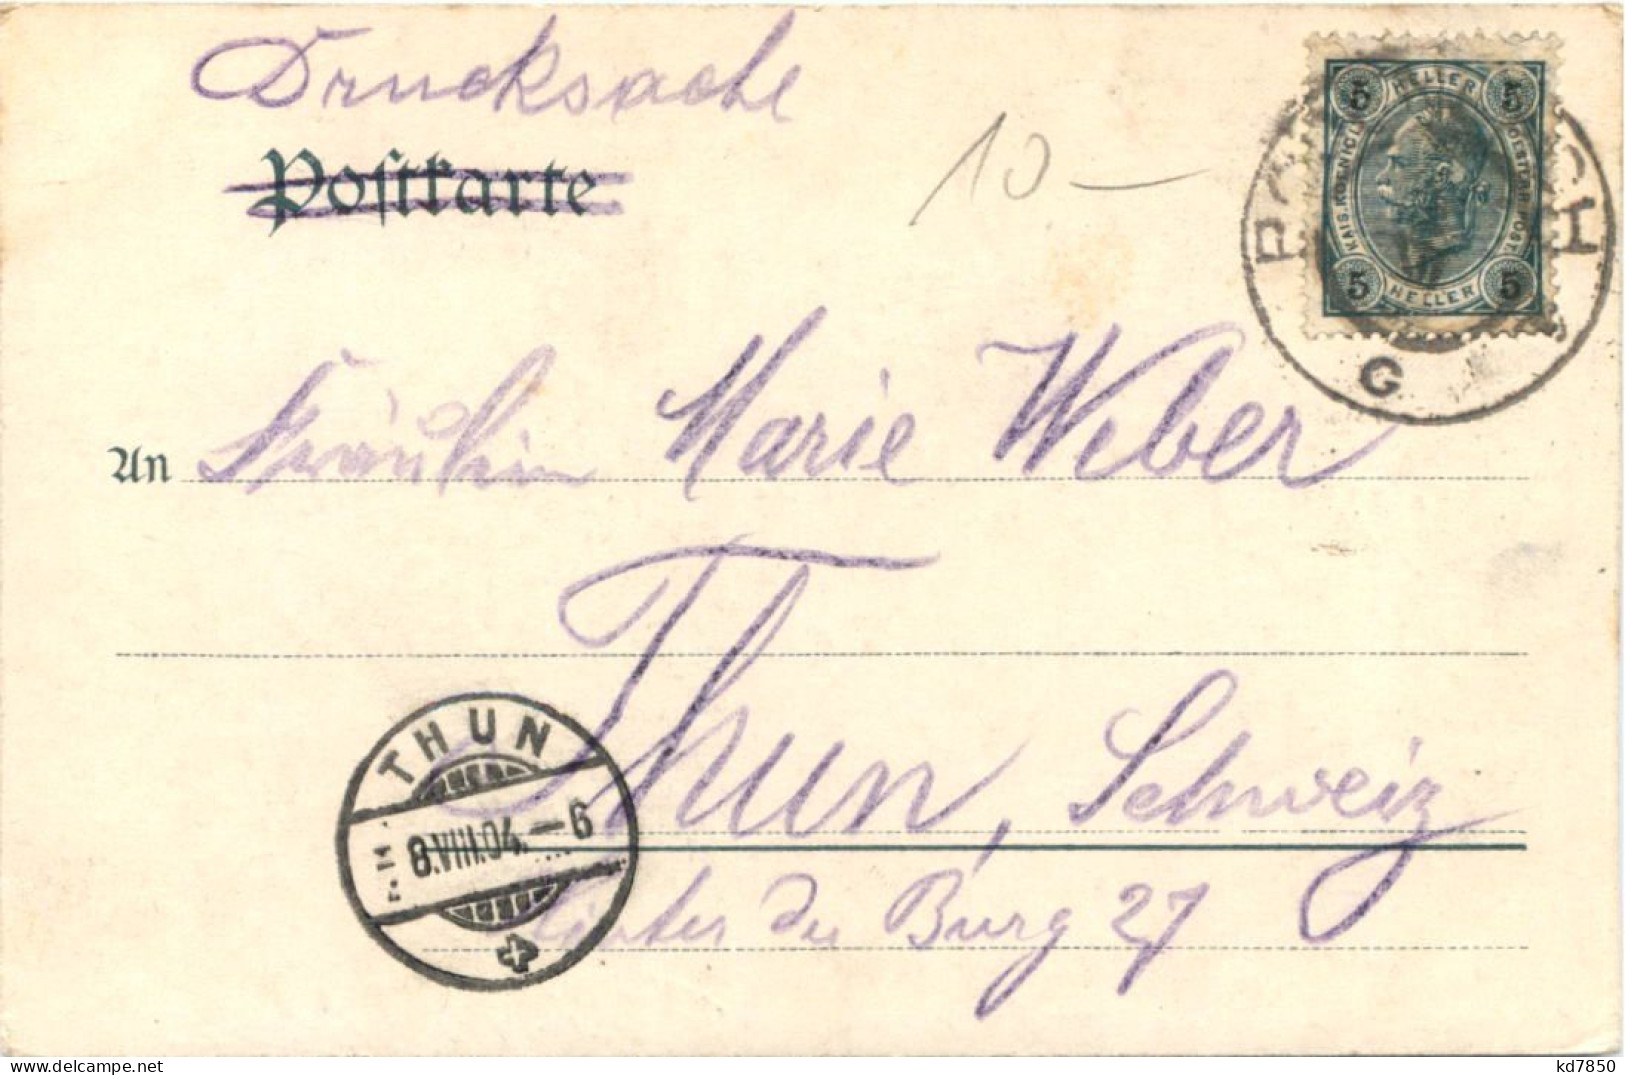 Drucksache
Postkarte
10 —
5 HELLER 5
KAIS. KOENIGL. OESTERR. POST.
5 HELLER 5
G
An Fräulein Marie Weber
Thun, Schweiz
Hinter der Burg 27
THUN
8.VIII.04. — 6
delcampe.net
kd7850